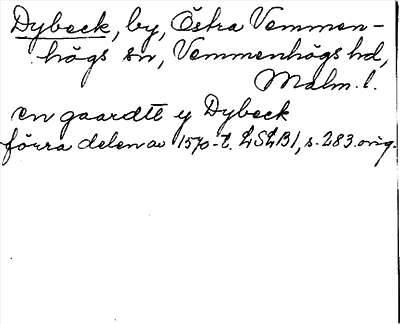 Dybeck, by, Östra Vemmen-
högs sn, Vemmenhögs hd,
Malm. l.
en gaardtt y Dybeck
förra delen av 1570-t. LSLB1, s. 283. orig.